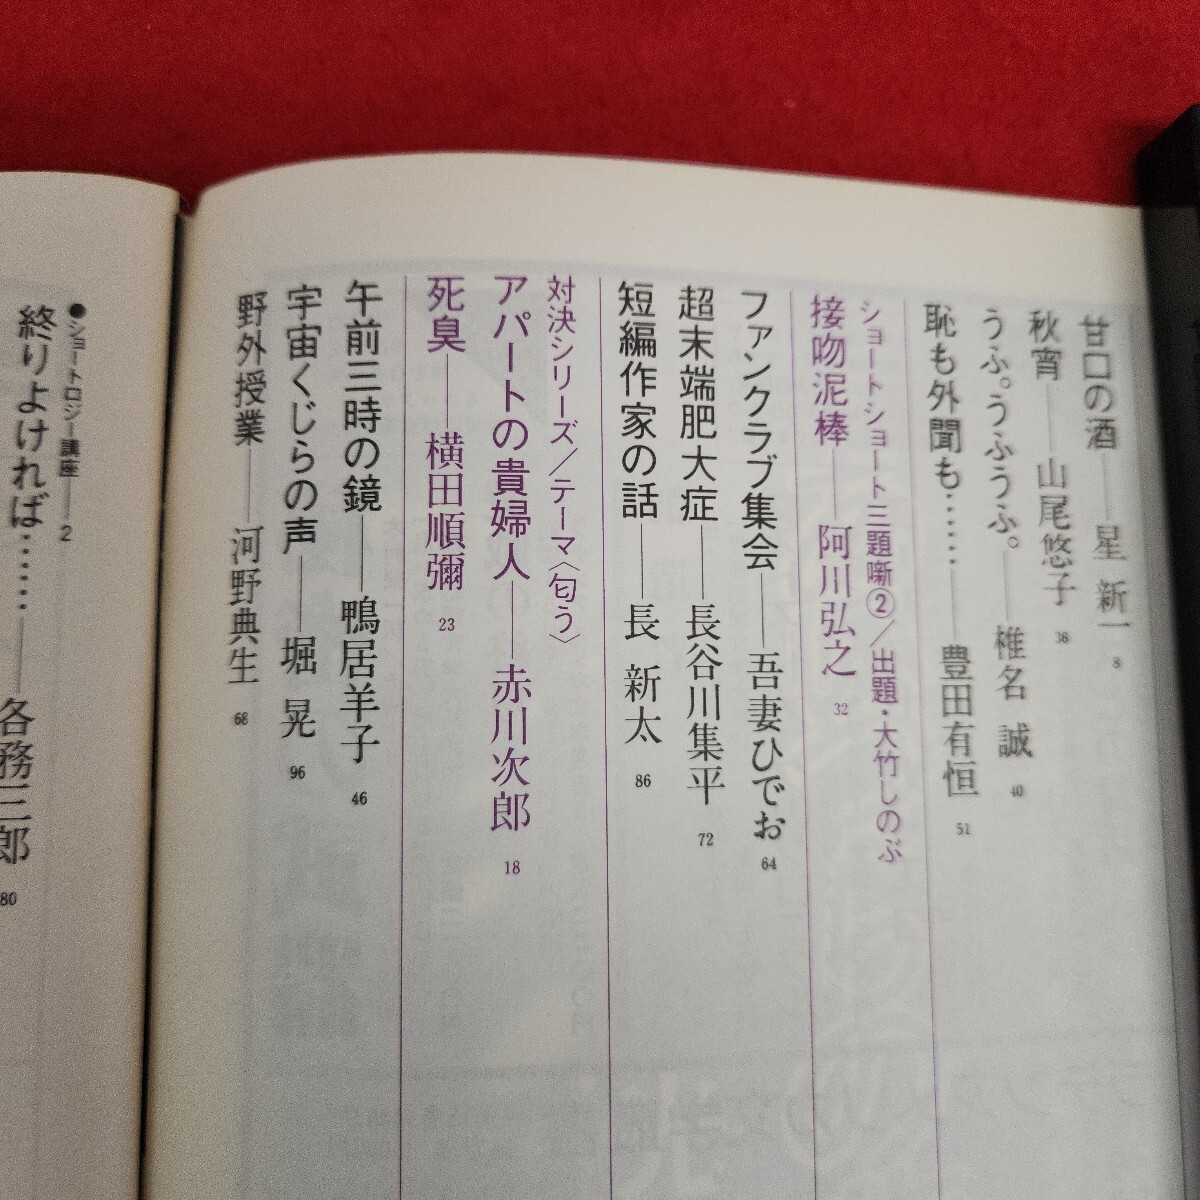 甘口の酒――星 新一 8
秋宵――山尾悠子 36
うふ。うふうふ。――椎名 誠 40
恥も外聞も……――豊田有恒 51
ショートショート三題噺②／出題・大竹しのぶ
接吻泥棒――阿川弘之 32
ファンクラブ集会――吾妻ひでお 64
超末端肥大症――長谷川集平 72
短編作家の話――長 新太 86
対決シリーズ／テーマ〈匂う〉
アパートの貴婦人――赤川次郎 18
死臭――横田順彌 23
午前三時の鏡――鴨居羊子 46
宇宙くじらの声――堀 晃 96
野外授業――河野典生 68
●ショートロジー講座――2
終りよければ……――各務三郎 80